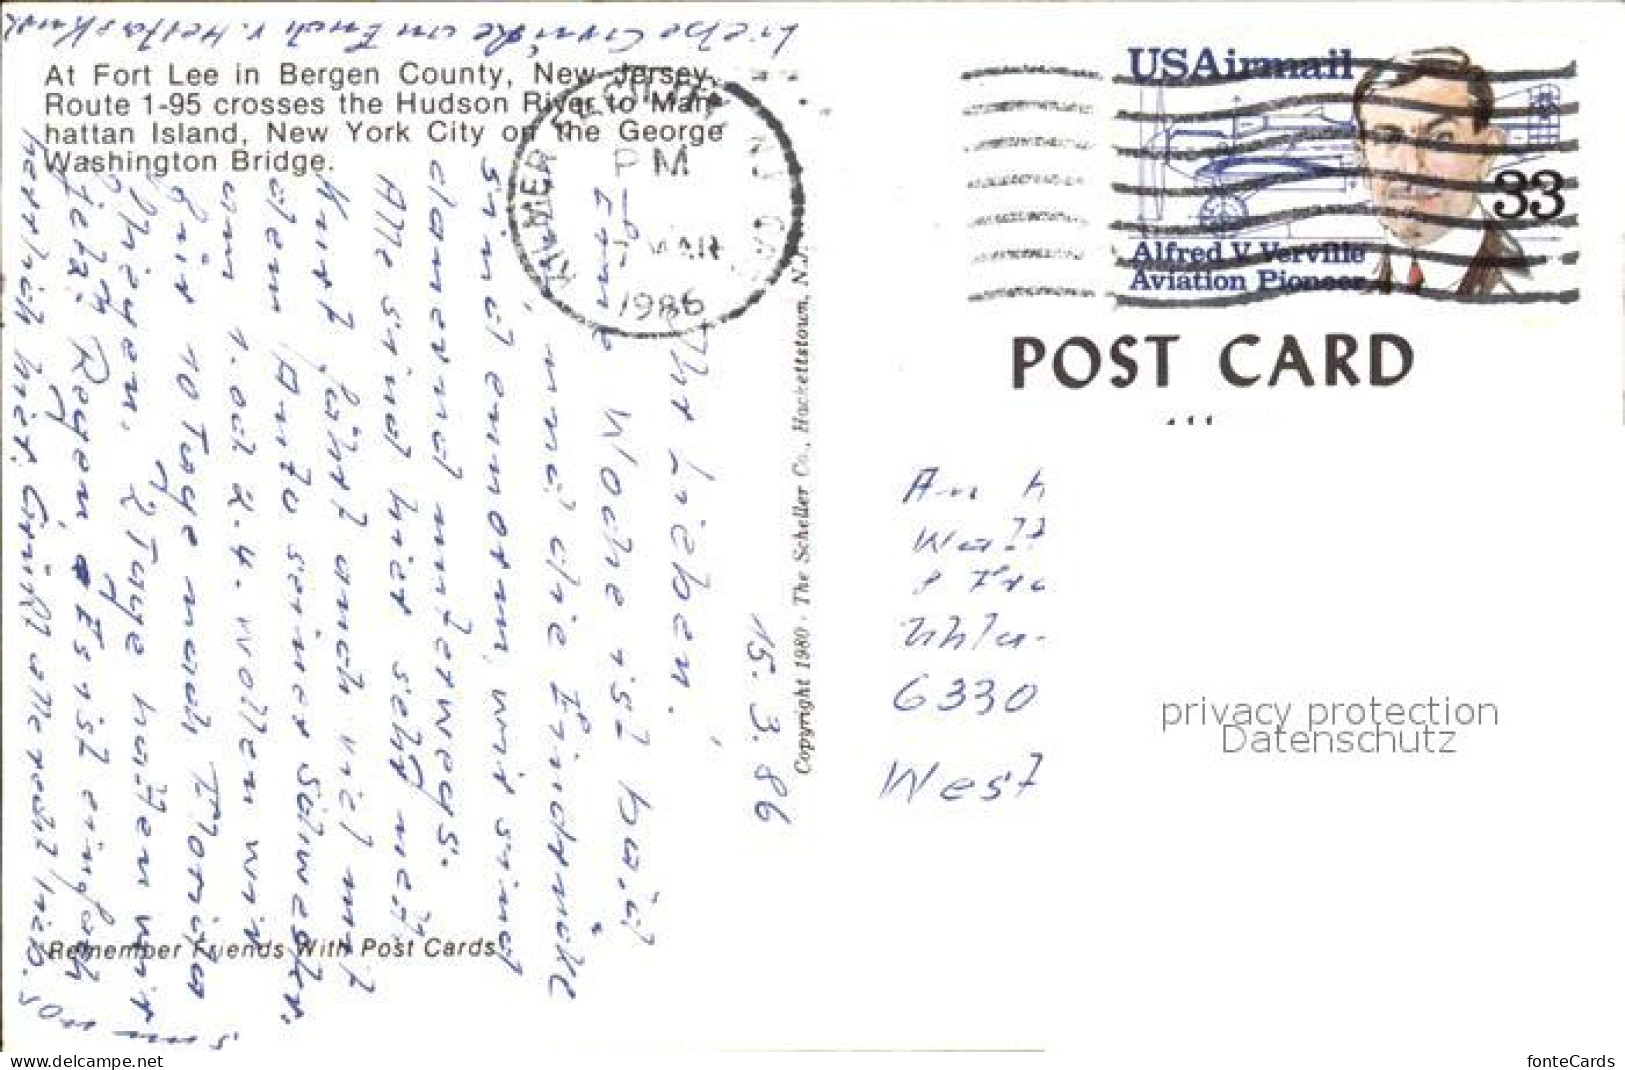 At Fort Lee in Bergen County, New Jersey,
Route 1-95 crosses the Hudson River to Man-
hattan Island, New York City on the George
Washington Bridge.
KILMER
PM
MAR
1986
N.J.
USAirmail
33
Alfred V. Verville
Aviation Pioneer
POST CARD
Copyright 1980 - The Scheller Co., Hackettstown, N.J.
15.3.86
Ihr Lieben,
Eine Woche ist bald
und die Eindrücke
sind enorm, wir sind
dauernd unterwegs.
Alle sind hier sehr nett
Kurt fährt auch viel mit
dem Auto seiner Schwester.
am 1. od 2.4. wollen wir
für 10 Tage nach Florida
fliegen. 2 Tage hatten wir
jetzt Regen. Es ist einfach
herrlich hier. Grüßt alle recht lieb.
Liebe Grüße an Euch v.
An
6330
West
Remember Friends With Post Cards
privacy protection
Datenschutz
www.delcampe.net
fonteCards